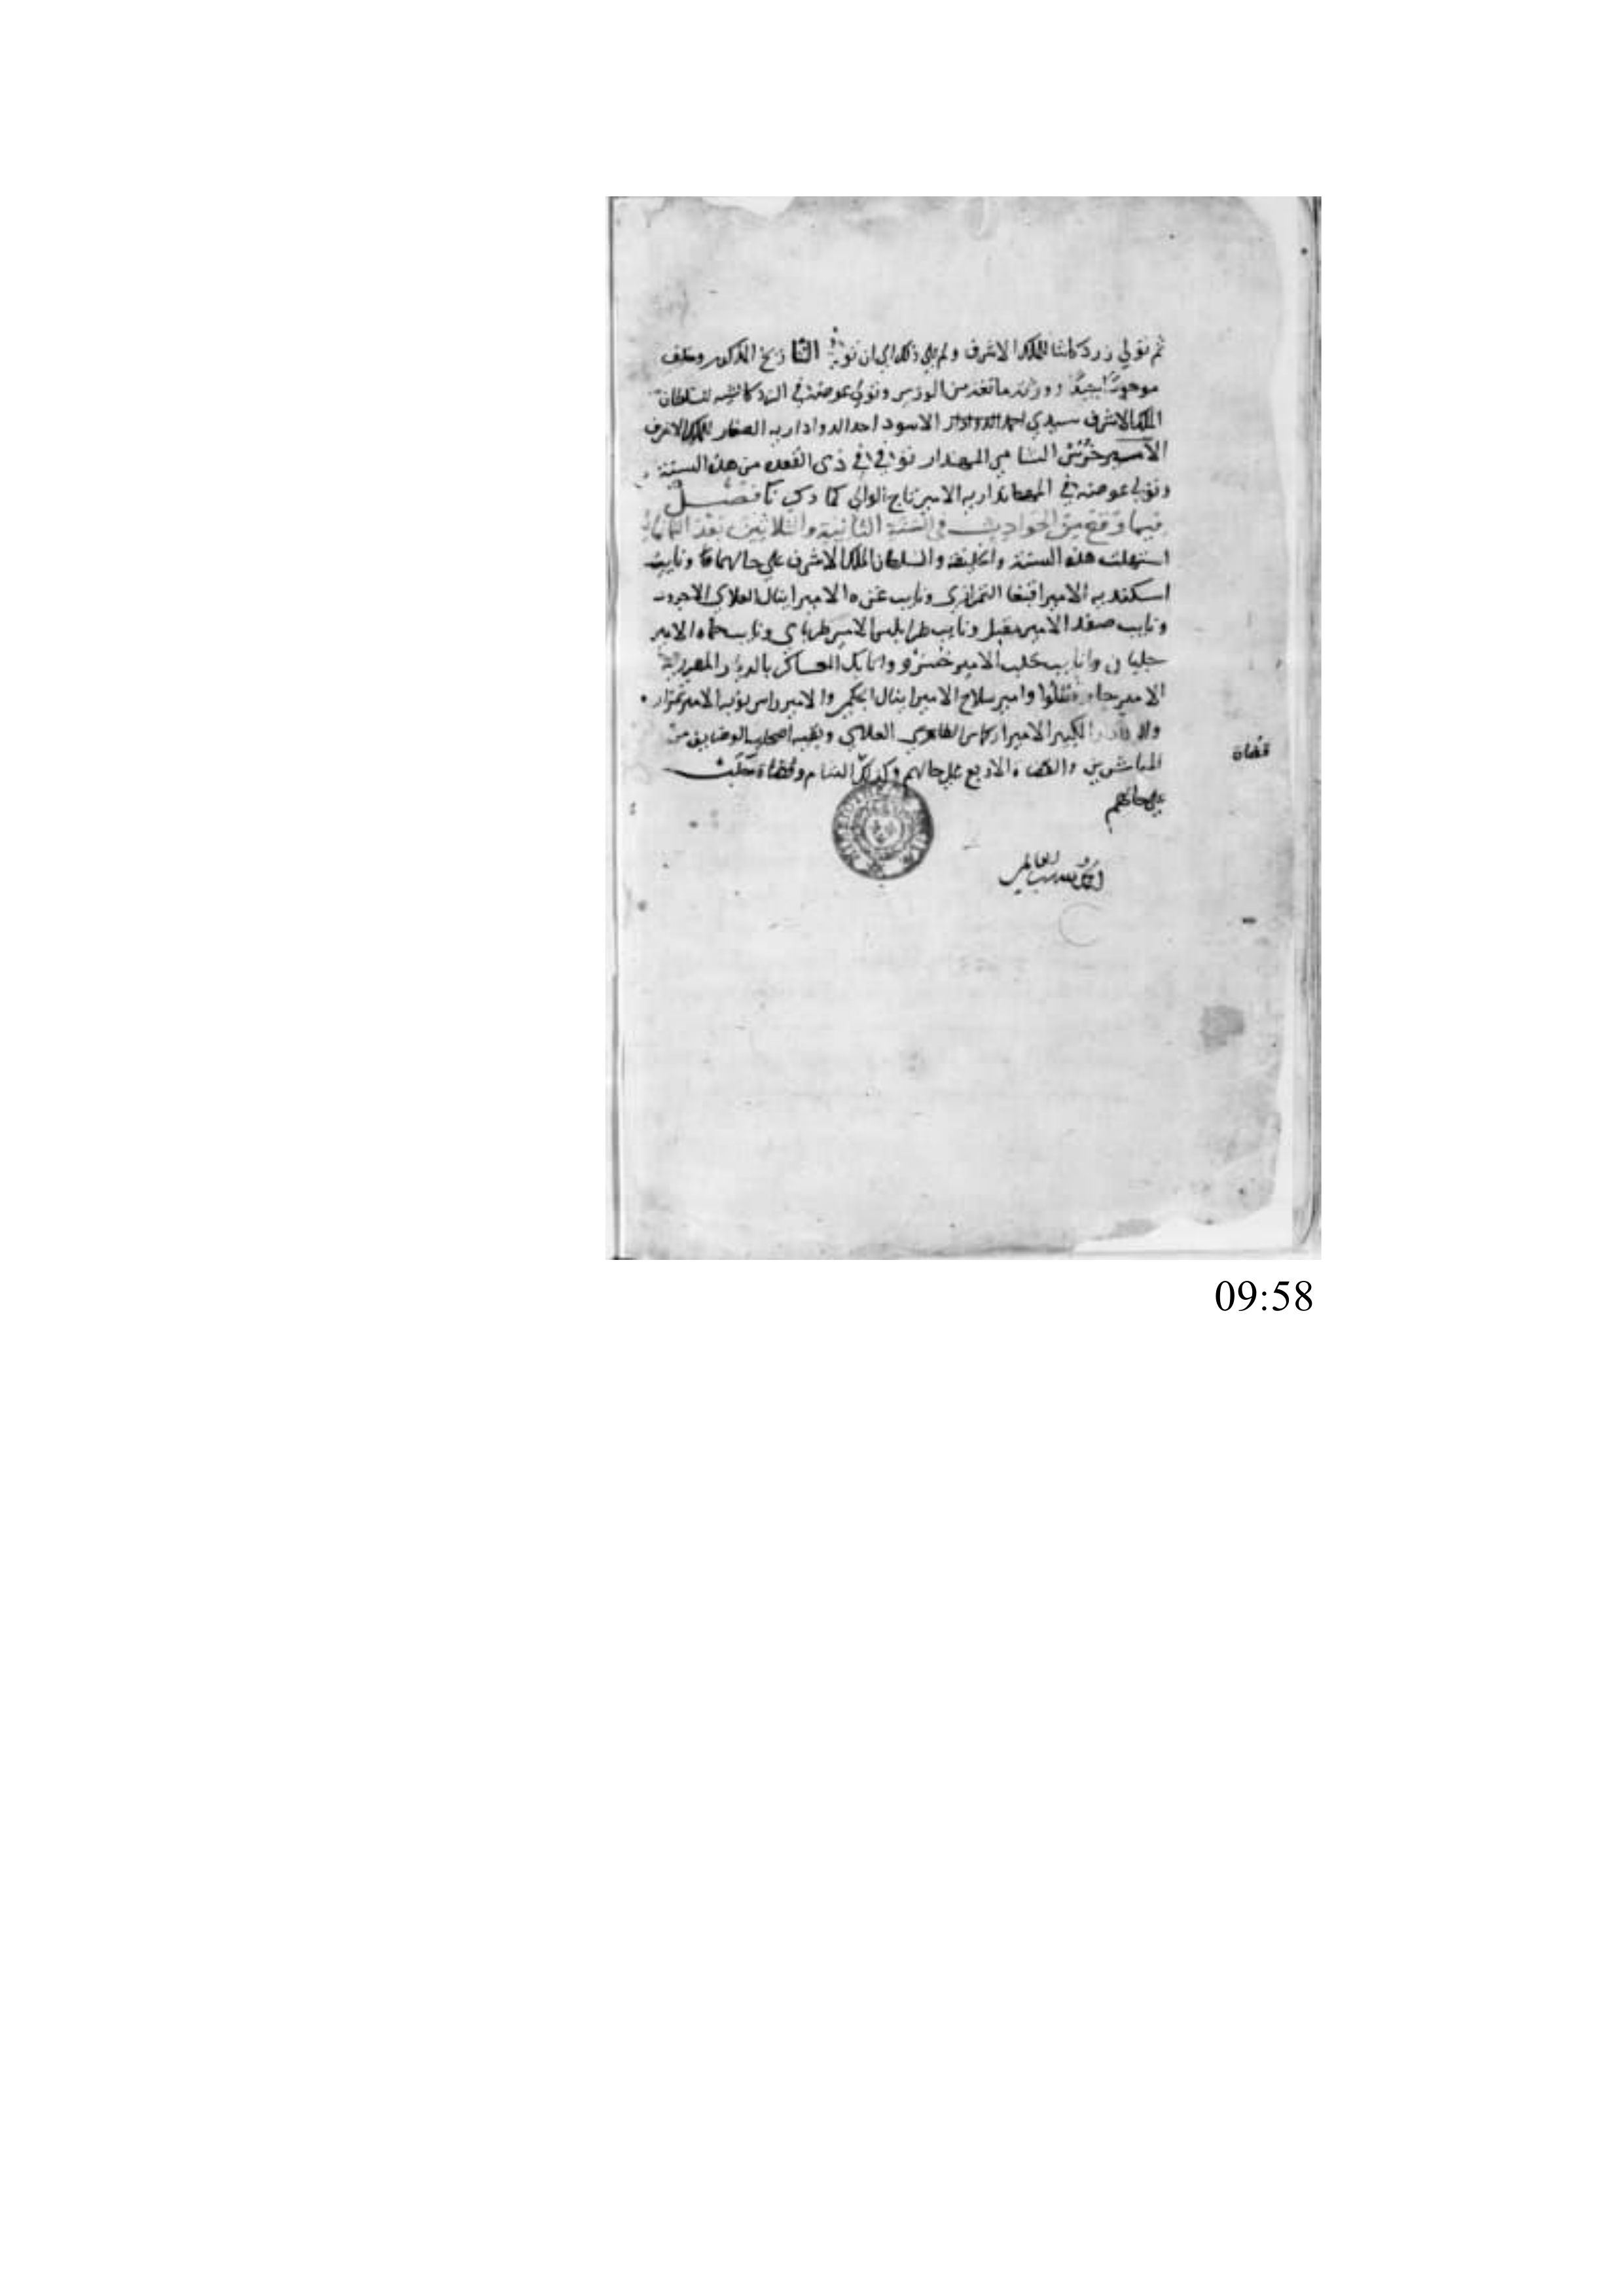 ثم تولي زردكاشا للملك الاشرف ولم يلي ذلك الي ان توفي التاريخ المذكور وخلف
موجودًا جيدًا وورثه من الورثه وتولي عوضه في الزردكاشيه للسلطان
الملك الاشرف سيدي احمد الدوادار الاسود احد الدواداريه الصغار للملك الاشرف
الامير الشامي المهمندار توفي في ذي القعده من هذه السنة
وتولي عوضه في المهمانداريه الامير تاج الوالي كما ذكرنا فصل
فيما وقع من الحوادث في السنة الثانية والثلاثين بعد الثمانمائة
استهلت هذه السنة والخليفة والسلطان الملك الاشرف علي حالهما ونايب
اسكندريه الامير اقبغا التمرازي ونايب غزه الامير اينال العلاي الاجرود
ونايب صفد الامير مقبل ونايب طرابلس الامير طرباي ونايب حماه الامير
جلبان ونايب حلب الامير واتابك العساكر بالديار المصرية
الامير جار قطلوا وامير سلاح الامير اينال الجكمي والامير راس نوبه الامير تمراز
والدوادار الكبير الامير اركماس الظاهري العلاي وبقيه اصحاب الوضايف من
المباشرين والقضاه الاربع علي حالهم وكذلك الشام وقضاة حلب
قضاة
علي حالهم
الحمد لله رب العالمين
09:58